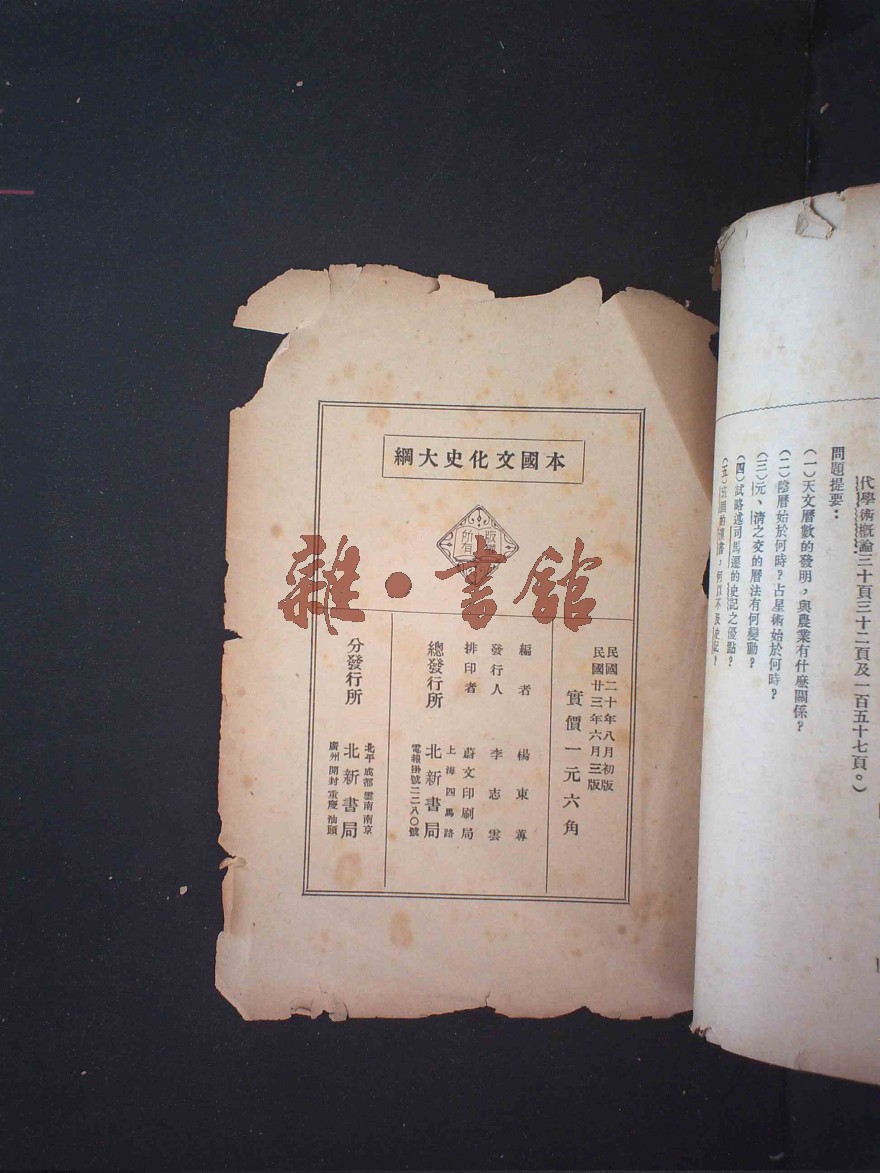 代學術概論三十頁三十二頁及一百五十七頁。）
問題提要：
（一）天文曆數的發明，與農業有什麼關係？
（二）陰曆始於何時？占星術始於何時？
（三）元、清之交的曆法有何變動？
（四）試略述司馬遷的史記之優點？
本國文化史大綱
版權所有
雜·書館
民國二十年八月初版
民國廿三年六月三版
實價一元六角
編者 楊東蓴
發行人 李志雲
排印者 蔚文印刷局
上海四馬路
總發行所 北新書局
電報掛號二二八〇號
北平 成都 雲南 南京
分發行所 北新書局
廣州 開封 重慶 汕頭